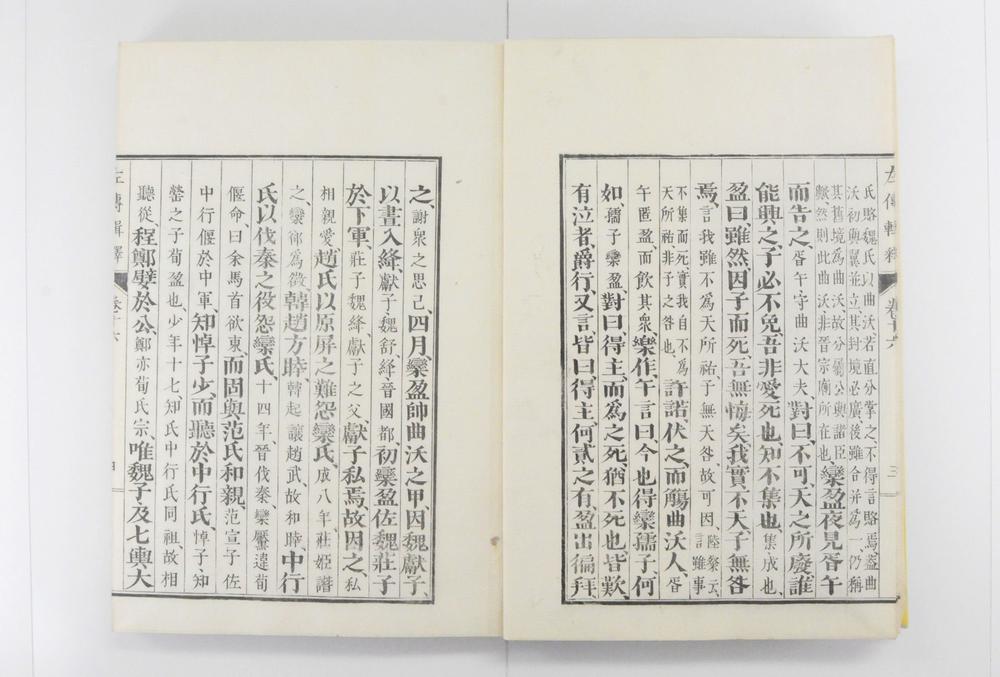 左傳輯釋 卷十六 三
氏賂魏氏以曲沃若直分掌之、不得言賂焉、蓋曲
沃初與翼並立、其封境必廣、後雖合并爲一、仍稱
其舊境爲曲沃、故分錫公與諸臣
歟、然則此曲沃非晉宗廟所在也、欒盈夜見胥午
而告之、胥午守曲沃大夫、對曰、不可、天之所廢、誰
能興之、子必不免、吾非愛死也、知不集也、集成也、
盈曰、雖然、因子而死、吾無悔矣、我實不天、子無咎
焉、言我雖不爲天所祐、子無天咎、故可因、陸粲云、言雖事
不集而死、實我自不爲
天所祐、非子之咎也、許諾、伏之、而觴曲沃人、胥
午匿盈、而飲其衆、樂作、午言曰、今也得欒孺子、何
如、孺子欒盈、對曰、得主、而爲之死、猶不死也、皆歎、
有泣者、爵行、又言、皆曰、得主、何貳之有、盈出徧拜、
之、謝衆之思己、四月、欒盈帥曲沃之甲、因魏獻子、
以晝入絳、獻子、魏舒、絳晉國都、初、欒盈佐魏莊子
於下軍、莊子、魏絳、獻子之父、獻子私焉、故因之、私
相親愛、趙氏以原屏之難怨欒氏、成八年、莊姬譖
之、欒郤爲徵、韓趙方睦、韓起讓趙武、故和睦、中行
氏以伐秦之役怨欒氏、十四年、晉伐秦、欒黶違荀
偃命、曰、余馬首欲東、而固與范氏和親、范宣子佐
中行偃於中軍、知悼子少、而聽於中行氏、悼子、知
罃之子荀盈也、少年十七、知氏中行氏同祖、故相
聽從、程鄭嬖於公、鄭亦荀氏宗、唯魏子及七輿大
左傳輯釋 卷十六